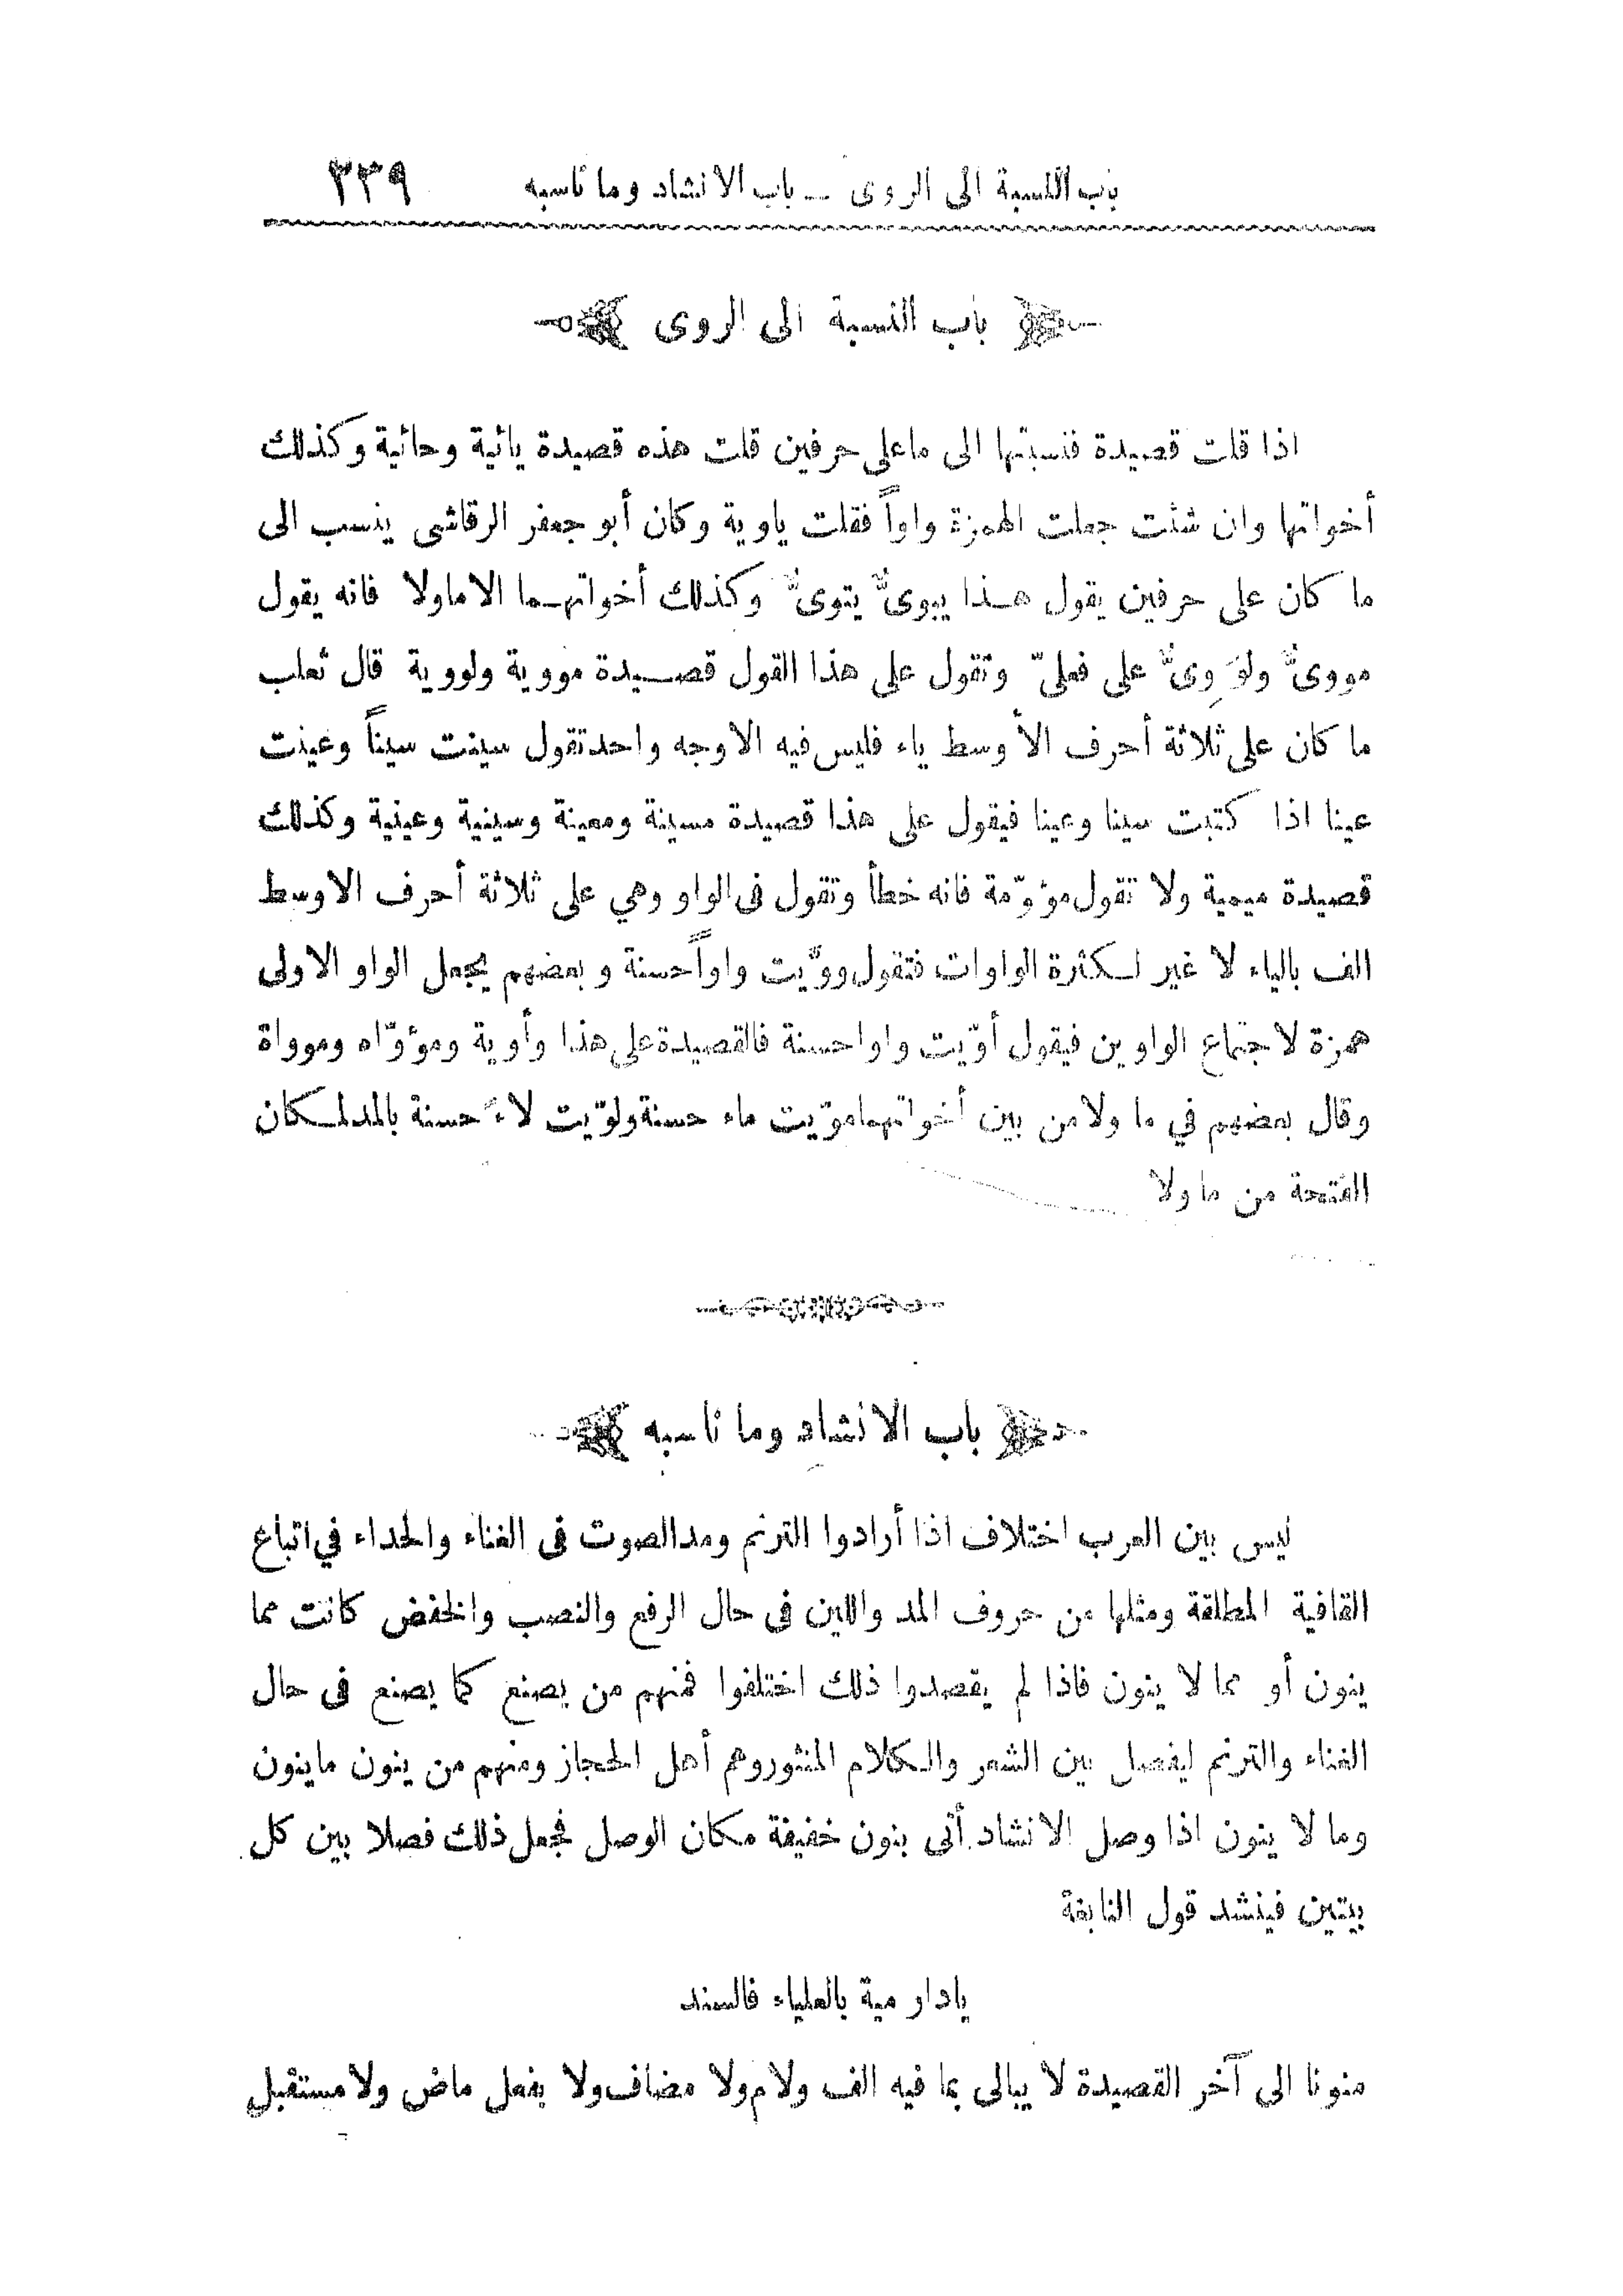 باب النسبة الى الروى — باب الانشاد وما ناسبه ٣٣٩
باب النسبة الى الروى
اذا قلت قصيدة فنسبتها الى ماعلى حرفين قلت هذه قصيدة يائية وحائية وكذلك
أخواتها وان شئت جعلت الهمزة واواً فقلت ياوية وكان أبو جعفر الرقاشى ينسب الى
ما كان على حرفين يقول هـذا يبوىٌّ يتوىٌّ وكذلك أخواتهـما الا ماولا فانه يقول
مووىٌّ ولَوِوىٌّ على فعلىّ وتقول على هذا القول قصـيدة مووية ولووية قال ثعلب
ما كان على ثلاثة أحرف الأوسط ياء فليس فيه الا وجه واحد تقول سينت سيناً وعينت
عينا اذا كتبت سينا وعينا فيقول على هذا قصيدة مسينة ومعينة وسينية وعينية وكذلك
قصيدة ميمية ولا تقول مؤوّمة فانه خطأ وتقول فى الواو وهي على ثلاثة أحرف الاوسط
الف بالياء لا غير لـكثرة الواوات فتقول ووّيت واواً حسنة وبعضهم يجعل الواو الاولى
همزة لاجتماع الواوين فيقول أوّيت واوا حسنة فالقصيدة على هذا وأوية ومؤوّاه ومواوة
وقال بعضهم في ما ولا من بين أخواتهما موّيت ماء حسنة ولوّيت لاءً حسنة بالمد لمـكان
الفتحة من ما ولا
باب الانشاد وما ناسبه
ليس بين العرب اختلاف اذا أرادوا الترنم ومد الصوت فى الغناء والحداء في اتباع
القافية المطلقة ومثلها من حروف المد واللين فى حال الرفع والنصب والخفض كانت مما
ينون أو مما لا ينون فاذا لم يقصدوا ذلك اختلفوا فمنهم من يصنع كما يصنع فى حال
الغناء والترنم ليفصل بين الشعر والـكلام المنثور وهم أهل الحجاز ومنهم من ينون ما ينون
وما لا ينون اذا وصل الانشاد أتى بنون خفيفة مكان الوصل فجعل ذلك فصلا بين كل
بيتين فينشد قول النابغة
يادار مية بالعلياء فالسند
منونا الى آخر القصيدة لا يبالى بما فيه الف ولام ولا مضاف ولا بفعل ماض ولا مستقبل